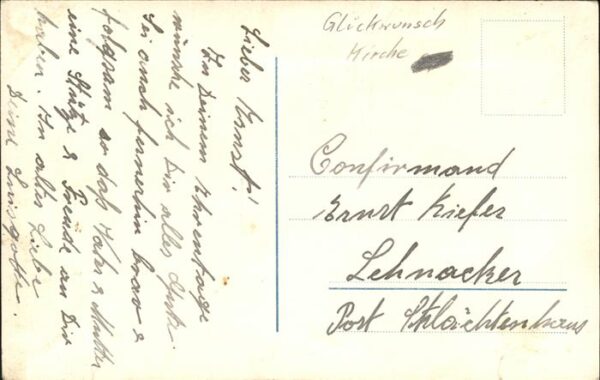 Lieber Ernst!
Zu Deinem Ehrentage
wünsche ich Dir alles Gute.
Sei auch fernerhin brav &
folgsam so daß Vater & Mutter
eine Stütze & Freude an Dir
haben. In alter Liebe
Deine
Glückwunsch
Kirche
Confirmand
Ernst Kiefer
Lehnacker
Post Schlächtenhaus